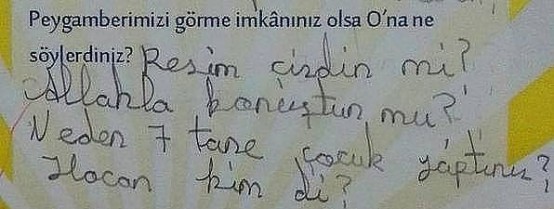 Peygamberimizi görme imkânınız olsa O'na ne
söylerdiniz? Resim çizdin mi?
Allahla konuştun mu?
Neden 7 tane çocuk yaptınız?
Hocan kim di?